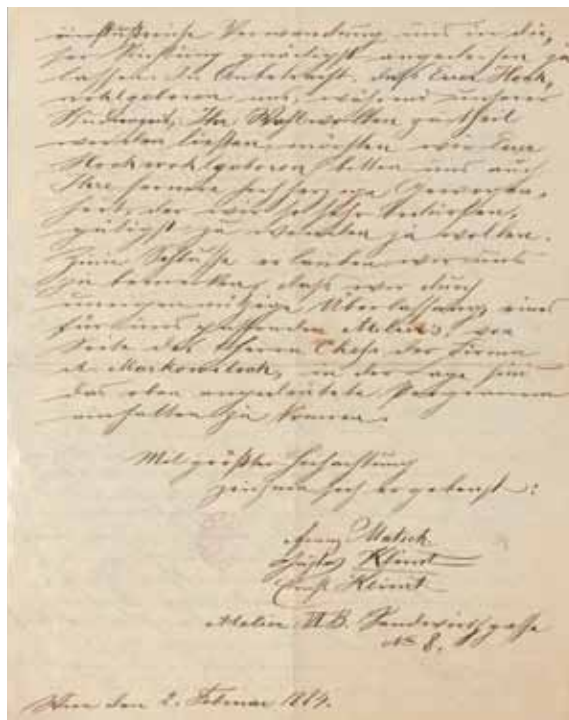 einflußreiche Verwendung uns in die,
ser Richtung gnädigst angedeihen zu
lassen. In Anbetracht, daß Euer Hoch,
wohlgeboren uns, während unserer
Studienzeit, Ihr Wohlwollen zutheil
werden ließen, möchten wir Euer
Hochwohlgeboren bitten uns auch
Ihre fernere hochherzige Gewogen,
heit, der wir so sehr bedürfen,
gütigst zu wenden zu wollen.
Zum Schlusse erlauben wir uns
zu bemerken, daß wir durch
uneigennützige Überlassung eines
für uns passenden Ateliers, von
Seite des Herrn Chefs der Firma
in der Lage sind
das oben angedeutete Programm
einhalten zu können.
Mit größter Hochachtung
zeichnen sich ergebenst:
Franz Matsch
Gustav Klimt
Ernst Klimt
Atelier VI. B. Sandwirthgasse
No 8.
Wien den 2. Februar 1884.